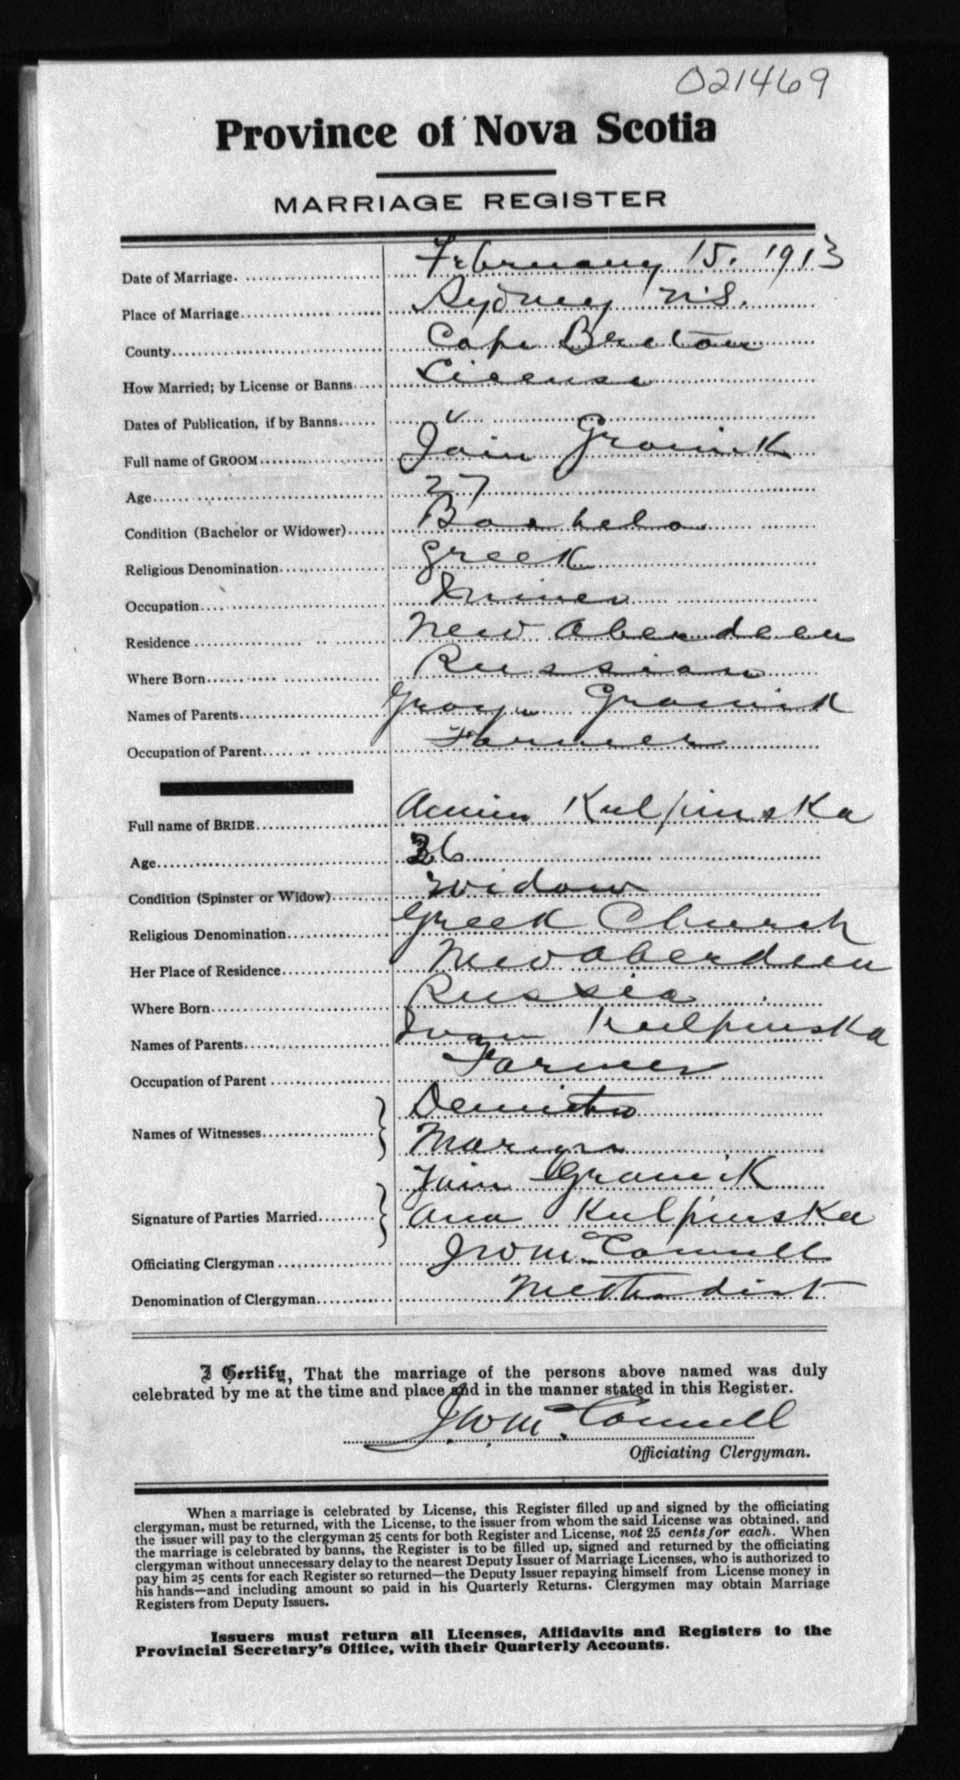 021469
Province of Nova Scotia
MARRIAGE REGISTER
Date of Marriage. February 15. 1913
Place of Marriage Sydney N.S.
County Cape Breton
How Married; by License or Banns License
Dates of Publication, if by Banns
Full name of GROOM Gromik
Age 27
Condition (Bachelor or Widower) Bachelor
Religious Denomination Greek
Occupation Miner
Residence New Aberdeen
Where Born Russian
Names of Parents Gromik
Occupation of Parent Farmer
Full name of BRIDE Annie Kulpinska
Age 36
Condition (Spinster or Widow) Widow
Religious Denomination Greek Church
Her Place of Residence New Aberdeen
Where Born Russia
Names of Parents Ivan Kulpinska
Occupation of Parent Farmer
Demietro
Names of Witnesses
Gramik
Signature of Parties Married Ana Kulpinska
Officiating Clergyman J W McConnell
Denomination of Clergyman Methodist
I Certify, That the marriage of the persons above named was duly
celebrated by me at the time and place and in the manner stated in this Register.
J. W. McConnell
Officiating Clergyman.
When a marriage is celebrated by License, this Register filled up and signed by the officiating
clergyman, must be returned, with the License, to the issuer from whom the said License was obtained, and
the issuer will pay to the clergyman 25 cents for both Register and License, not 25 cents for each. When
the marriage is celebrated by banns, the Register is to be filled up, signed and returned by the officiating
clergyman without unnecessary delay to the nearest Deputy Issuer of Marriage Licenses, who is authorized to
pay him 25 cents for each Register so returned—the Deputy Issuer repaying himself from License money in
his hands—and including amount so paid in his Quarterly Returns. Clergymen may obtain Marriage
Registers from Deputy Issuers.
Issuers must return all Licenses, Affidavits and Registers to the
Provincial Secretary's Office, with their Quarterly Accounts.